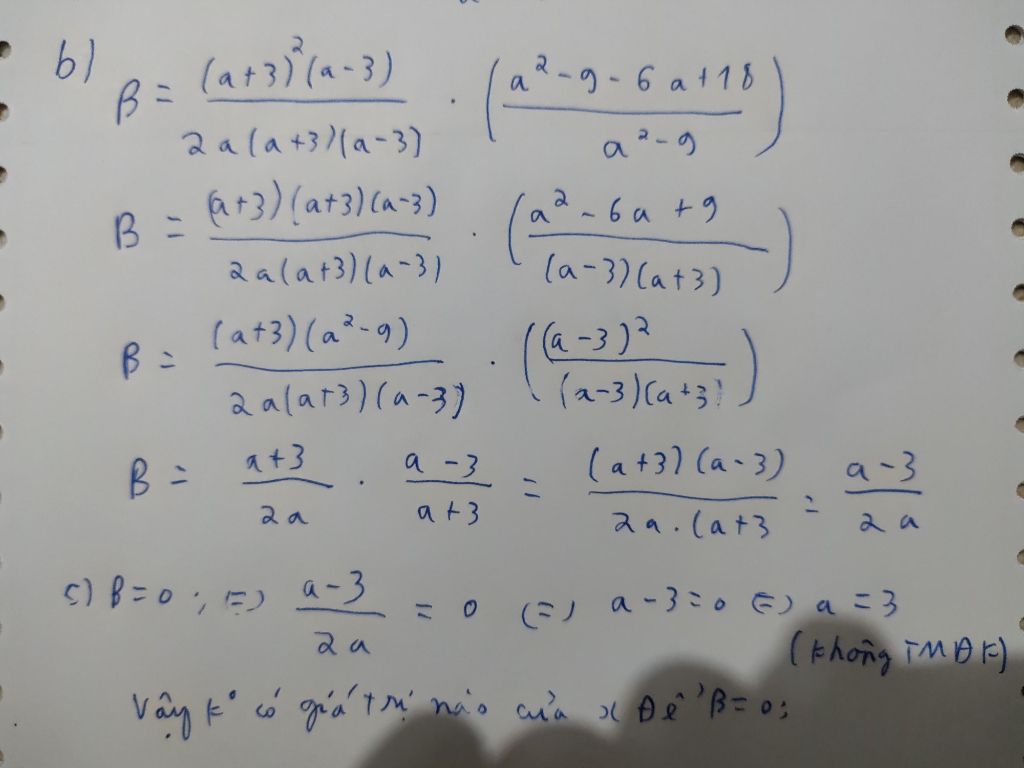 b) B = (a+3)²(a-3) / 2a(a+3)(a-3) · (a²-9-6a+18 / a²-9)
B = (a+3)(a+3)(a-3) / 2a(a+3)(a-3) · (a²-6a+9 / (a-3)(a+3))
B = (a+3)(a²-9) / 2a(a+3)(a-3) · ((a-3)² / (a-3)(a+3))
B = a+3 / 2a · a-3 / a+3 = (a+3)(a-3) / 2a.(a+3 = a-3 / 2a
c) B=0; (=) a-3 / 2a = 0 (=) a-3=0 (=) a=3
(không TMĐK)
Vậy k° có giá trị nào của x Để B=0;